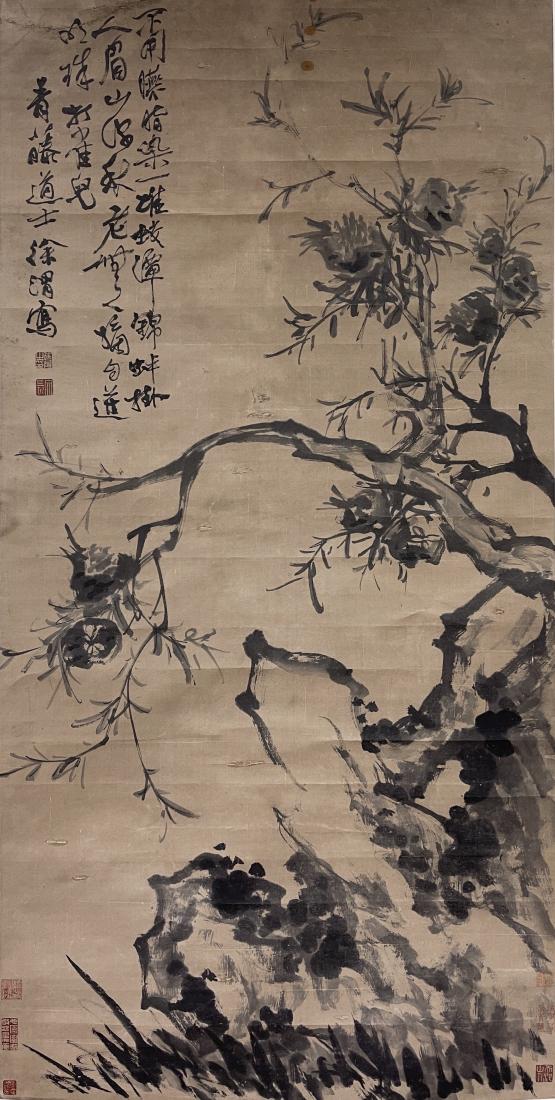 不用臙脂染一堆蛟潭錦蚌掛
人眉山深秋老無人摘自迸
明珠打雀兒
青藤道士徐渭寫